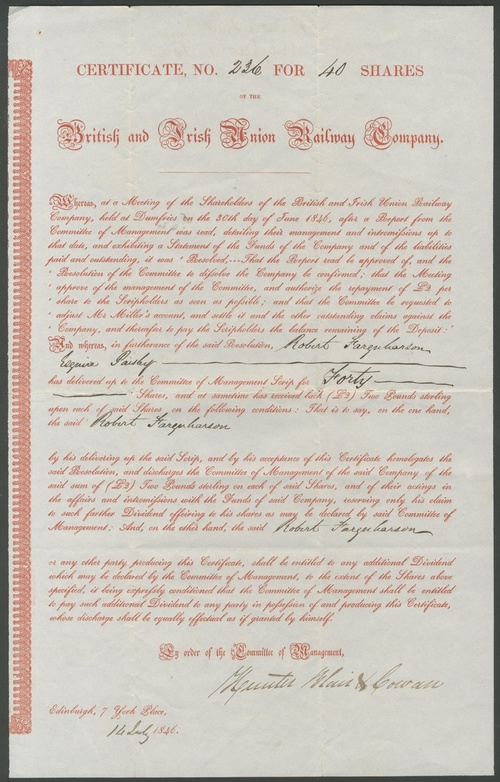 CERTIFICATE, NO. 236 FOR 40 SHARES
OF THE
British and Irish Union Railway Company.
Whereas, at a Meeting of the Shareholders of the British and Irish Union Railway
Company, held at Dumfries on the 30th day of June 1846, after a Report from the
Committee of Management was read, detailing their management and intromissions up to
that date, and exhibiting a Statement of the Funds of the Company and of the liabilities
paid and outstanding, it was 'Resolved,---That the Report read be approved of, and the
' Resolution of the Committee to dissolve the Company be confirmed; that the Meeting
' approve of the management of the Committee, and authorize the repayment of £2 per
' share to the Scripholders as soon as possible; and that the Committee be requested to
' adjust Mr Miller's account, and settle it and the other outstanding claims against the
' Company, and thereafter to pay the Scripholders the balance remaining of the Deposit:'
And whereas, in furtherance of the said Resolution, Robert Farquharson
Esquire Paisley
has delivered up to the Committee of Management Scrip for Forty
Shares, and at sametime has received back (£2) Two Pounds sterling
upon each of said Shares, on the following conditions: That is to say, on the one hand,
the said Robert Farquharson
by his delivering up the said Scrip, and by his acceptance of this Certificate homologates the
said Resolution, and discharges the Committee of Management of the said Company of the
said sum of (£2) Two Pounds sterling on each of said Shares, and of their actings in
the affairs and intromissions with the Funds of said Company, reserving only his claim
to such further Dividend effeiring to his shares as may be declared by said Committee of
Management; And, on the other hand, the said Robert Farquharson
or any other party producing this Certificate, shall be entitled to any additional Dividend
which may be declared by the Committee of Management, to the extent of the Shares above
specified, it being expressly conditioned that the Committee of Management shall be entitled
to pay such additional Dividend to any party in possession of and producing this Certificate,
whose discharge shall be equally effectual as if granted by himself.
By order of the Committee of Management,
Hunter Blair & Cowan
Edinburgh, 7 York Place,
14 July 1846.